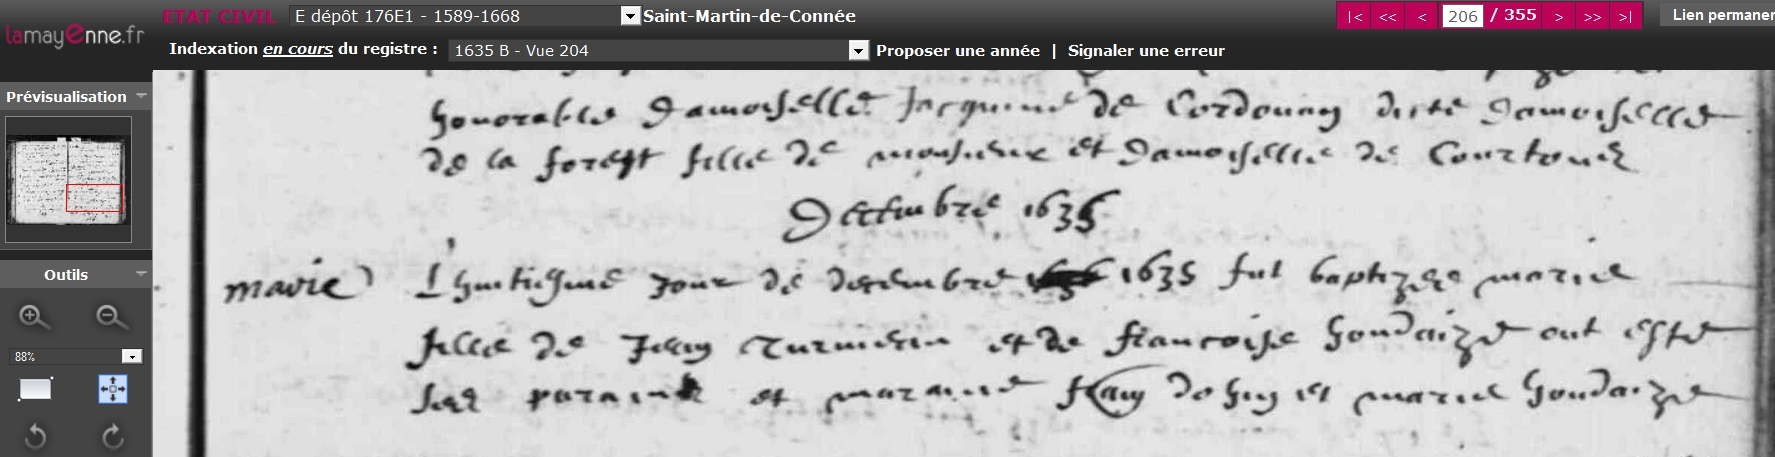 lamayenne.fr
ETAT CIVIL E dépôt 176E1 - 1589-1668 Saint-Martin-de-Connée |< << < 206 / 355 > >> >| Lien permanen
Indexation en cours du registre : 1635 B - Vue 204 Proposer une année | Signaler une erreur
Prévisualisation
Outils
88%
honorable Damoiselle Jacquine de Cordouan dicte Damoiselle
de la forest fille de monsieur et Damoiselle de Courtoux
Decembre 1635
marie L'huitiesme jour de decembre 1635 fut baptizee marie
fille de Jean et de francoise houdaize ont esté
ses parain et maraine et marie houdaize